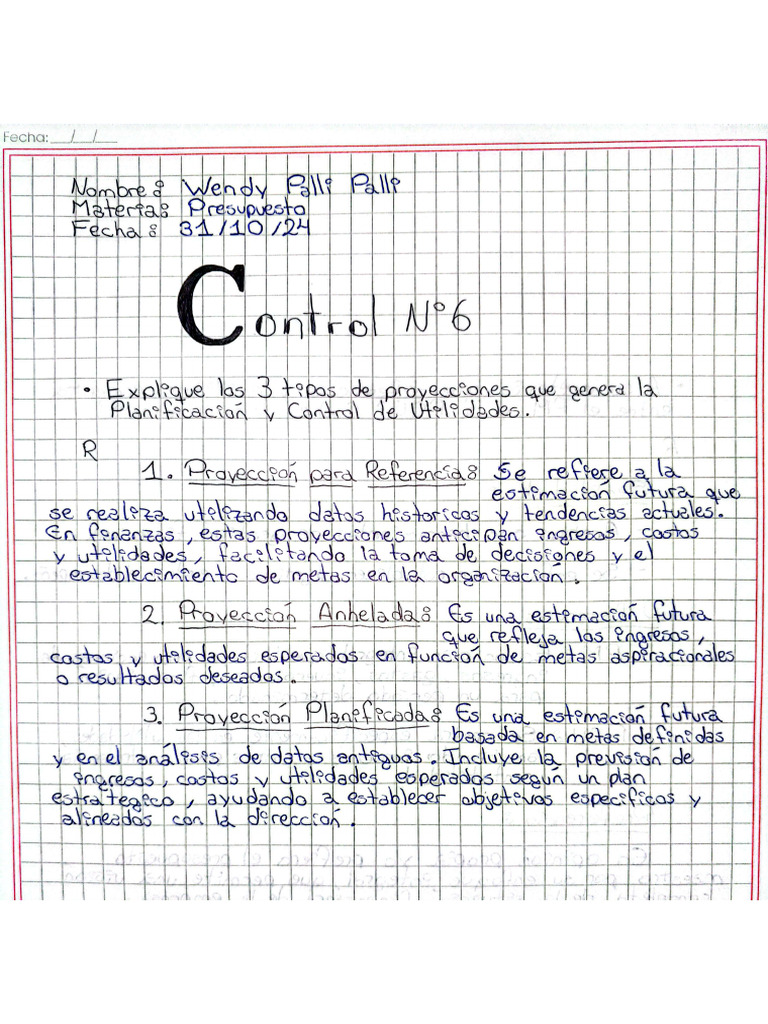 Fecha:__/__/__
Nombre: Wendy Palli Palli
Materia: Presupuesto
Fecha: 31/10/24
Control N°6
• Explique las 3 tipos de proyecciones que genera la
Planificación y Control de Utilidades.
R
1. Proyección para Referencia: Se refiere a la
estimación futura que
se realiza utilizando datos historicos y tendencias actuales.
En finanzas, estas proyecciones anticipan ingresos, costos
y utilidades, facilitando la toma de decisiones y el
establecimiento de metas en la organización.
2. Proyección Anhelada: Es una estimación futura
que refleja los ingresos,
costos y utilidades esperados en función de metas aspiracionales
o resultados deseados.
3. Proyección Planificada: Es una estimación futura
basada en metas definidas
y en el análisis de datos antiguos. Incluye la previsión de
ingresos, costos y utilidades esperados según un plan
estratégico, ayudando a establecer objetivos especificos y
alineados con la dirección.